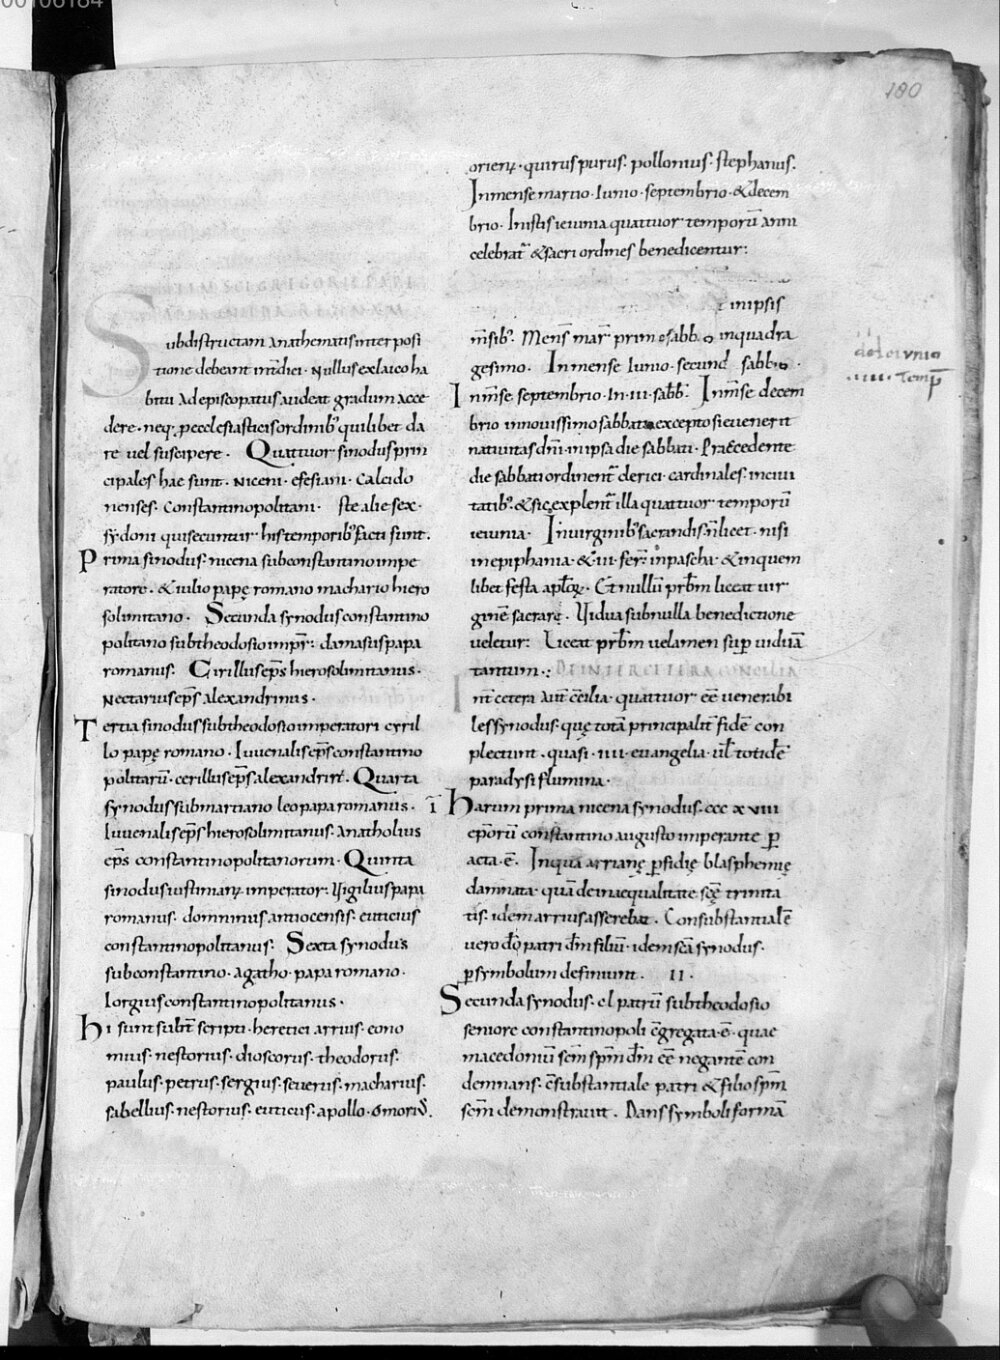 00106184
180
Subdistructam anathematis inter posi
tione debeant intdici. Nullus exlaico ha
bitu ad episcopatus audeat gradum acce
dere. neq; p ecclesiasticis ordinib; quilibet da
re uel suscipere. Quattuor sinodus prin
cipales hae sunt. niceni. efesiani. calcido
nenses. Constantinopolitani. Iste alie sex.
sydoni qui secuntur his temporib; facti sunt.
Prima sinodus. nicena sub constantino impe
ratore. & iulio papę romano machario hiero
solimitano. Secunda synodus constantino
politano sub theodosio impr̄. damasus papa
romanus. Cirillus ep̄s hierosolimitanus.
Nectarius ep̄s alexandrinus.
Tertia sinodus sub theodosio imperatori cyril
lo papę romano. Iuuenalis ep̄s constantino
politarū. cerillus ep̄s alexandrin̄. Quarta
synodus sub martiano leo papa romanus.
Iuuenalis ep̄s hierosolimitanus. Anatholius
ep̄s constantinopolitanorum. Quinta
sinodus iustiniani imperator. Vigilius papa
romanus. domninus antiocensis. euticius
constantinopolitanus. Sexta synodus
sub constantino. agatho. papa romano.
Iorgius constantinopolitanus.
Hi sunt subt̄ scripti. heretici arrius. eono
mius. nestorius. dioscorus. theodorus.
paulus. petrus. sergius. seuerus. macharius.
sabellius. nestorius. euticus. apollo.
quirus purus. pollonius. stephanus.
In mense martio. Iunio. septembrio. & decem
brio. In istis ieiunia quattuor temporū anni
celebrat̄ & sacri ordines benedicentur:
in ipsis
m̄sib;. Mens̄ mar̄ primo sabb̄o in quadra
gesimo. In mense Iunio. secund sabb̄o.
In m̄se septembrio. In. III. sabb̄. In m̄se decem
brio in nouissimo sabbato excepto si euenerit
natiuitas dn̄i. in ipsa die sabbati. Praecedente
die sabbati ordinent̄ clerici. cardinales. in ciui
tatib;. & sic explent̄ illa quattuor temporū
ieiunia. In uirginib; sacrandis n̄ licet. nisi
in epiphania. & III. fer̄. in pascha. & in quem
libet festa aplōꝝ. Et nullū prb̄m liceat uir
ginē sacrarę. Vidua sub nulla benedictione
ueletur: Liceat prb̄m uelamen sup uiduā
tantum.
Int cetera aut̄ c̄cilia. quattuor ēē uenerabi
les synodus. quę totā principalit̄ fidē con
plectunt. quasi. IIII. euangelia. ul̄ totidē
paradysi flumina.
I Harum prima nicena synodus. ccc xviii
ep̄orū constantino augusto imperante p
acta. ē. In qua arrianę pfidię blasphemię
damnata. quā de inaequalitate scę̄ trinita
tis. idem arrius asserebat. Consubstantialē
uero dō patri dm̄ filiū. idem sc̄a synodus.
p symbolum definiuit. II.
Secunda synodus. cl patrū sub theodosio
seniore constantinopoli c̄gregata. ē. quae
macedoniū sc̄m sp̄m dm̄ ēē negantē con
demnans. c̄substantiale patri & filio sp̄m
sc̄m demonstrauit. Dans symboli formā
de ieiunio
.IIII. Temp̄